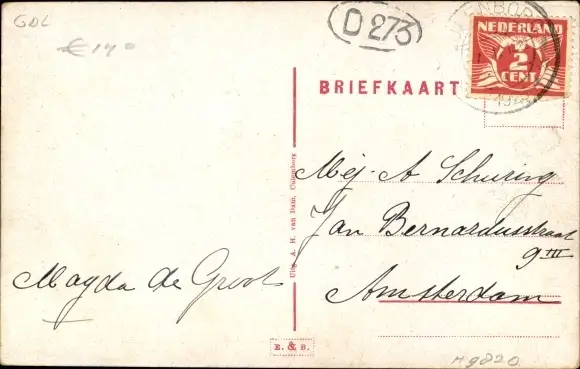 GDL
€ 14,-
D 273
NEDERLAND
2
CENT
BRIEFKAART
Mej. A Schuring
Jan Bernardusstraat
9 III
Amsterdam
Magda de Groot
Uitg. A. H. van Dam, Culemborg
E. & B.
M9820